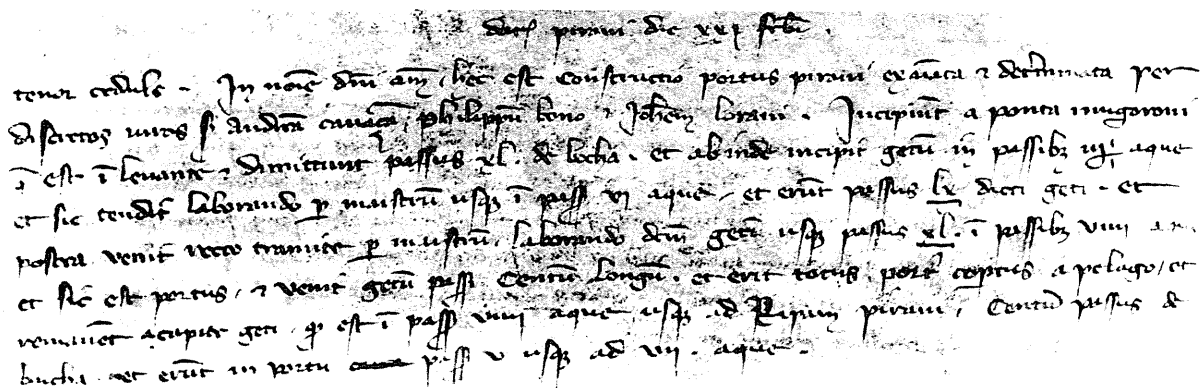 pirani die xxi
tenor cedule . In noīe dnī am̄ . hec est constructio portus pirani exāīata et det̄mīnata per
discretos viros Andream Philippū bono et Joh̄em . Incipiūt a ponta mugoroni
ī est ī levante et dimittunt passus xl . de bocha . et ab inde incipit getū in passibȝ aque
et sic tendit laborando ꝑ maistrū usqȝ ī pass̄ vi aque . et erūt passus lx dicti geti . et
postea venit recto tramite ꝑ maistrū . laborando dc̄m getū usqȝ passus xl . ī passibȝ viiii
et sic est portus . et venit getū pass̄ centū longū . et erit totus port̄ coptus a pelago . et
remanet a capite geti . qd̄ est ī pass̄ viiii aque usqȝ ad Ripam pirani . Centū passus de
bucha . et erūt in portu pass̄ v usqȝ ad vii . aque .